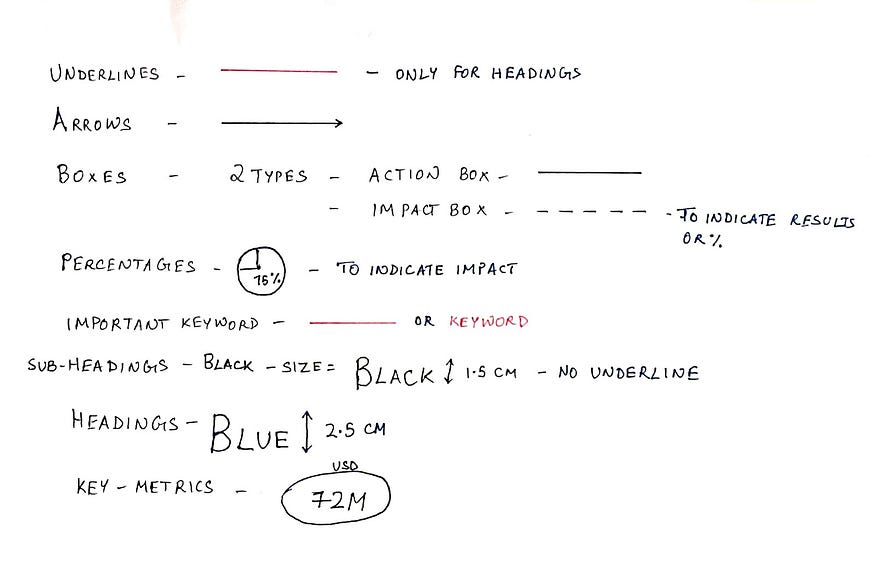 UNDERLINES - - ONLY FOR HEADINGS
ARROWS -
BOXES - 2 TYPES - ACTION BOX -
- IMPACT BOX - - TO INDICATE RESULTS
OR %
PERCENTAGES - 75% - TO INDICATE IMPACT
IMPORTANT KEYWORD - OR KEYWORD
SUB-HEADINGS - BLACK - SIZE = BLACK 1.5 CM - NO UNDERLINE
HEADINGS - BLUE 2.5 CM
USD
KEY - METRICS - 72M